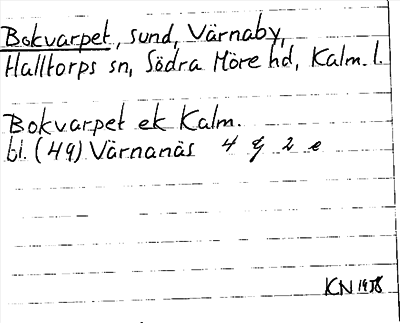 Bokvarpet, sund, Värnaby,
Halltorps sn, Södra Möre hd, Kalm. l.
Bokvarpet ek Kalm.
bl. (49) Värnanäs 4 g 2 e
KN 1978